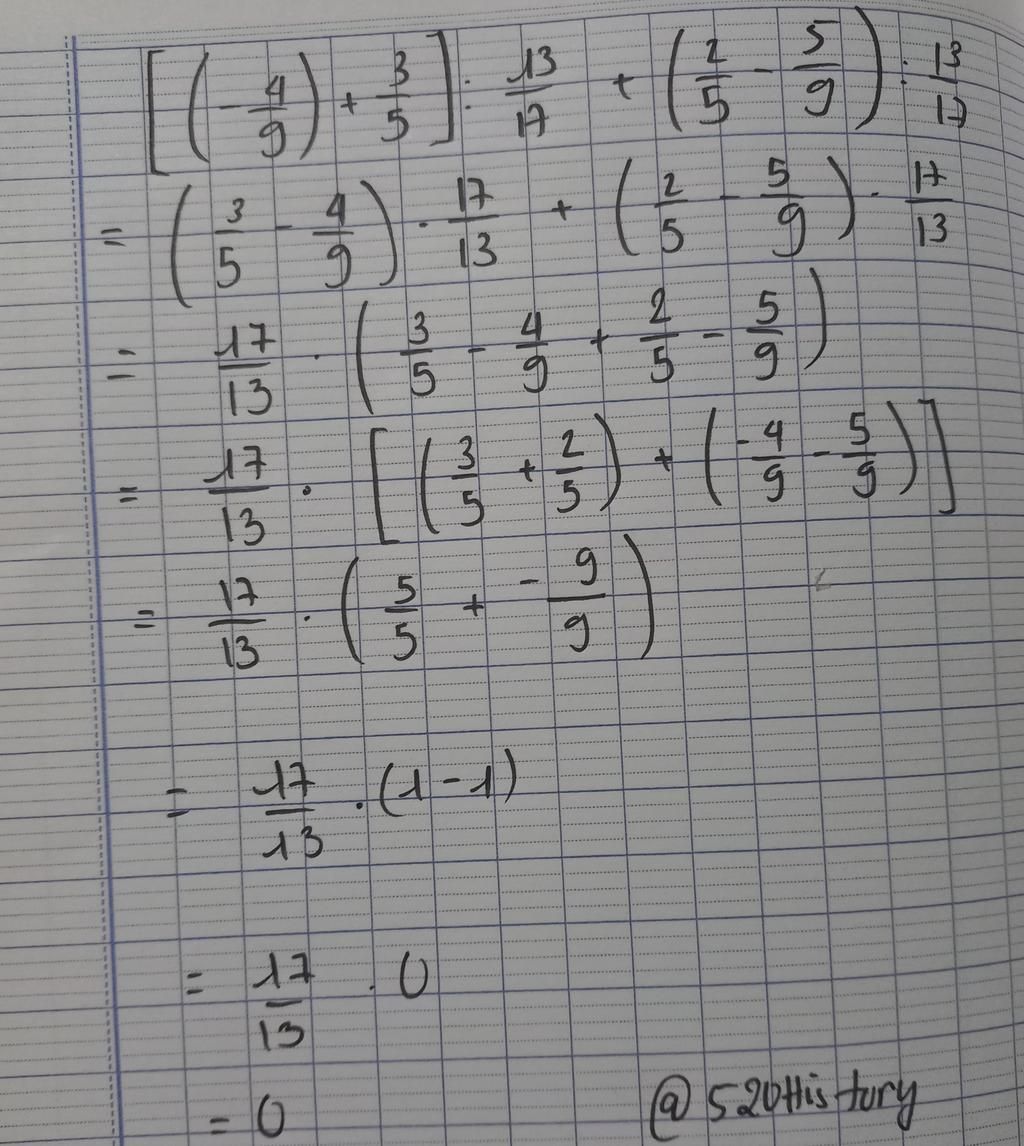 [(-4/9) + 3/5] : 13/17 + (2/5 - 5/9) : 13/17
= (3/5 - 4/9) . 17/13 + (2/5 - 5/9) . 17/13
= 17/13 . (3/5 - 4/9 + 2/5 - 5/9)
= 17/13 . [(3/5 + 2/5) + (-4/9 - 5/9)]
= 17/13 . (5/5 + -9/9)
= 17/13 . (1 - 1)
= 17/13 . 0
= 0
@520History